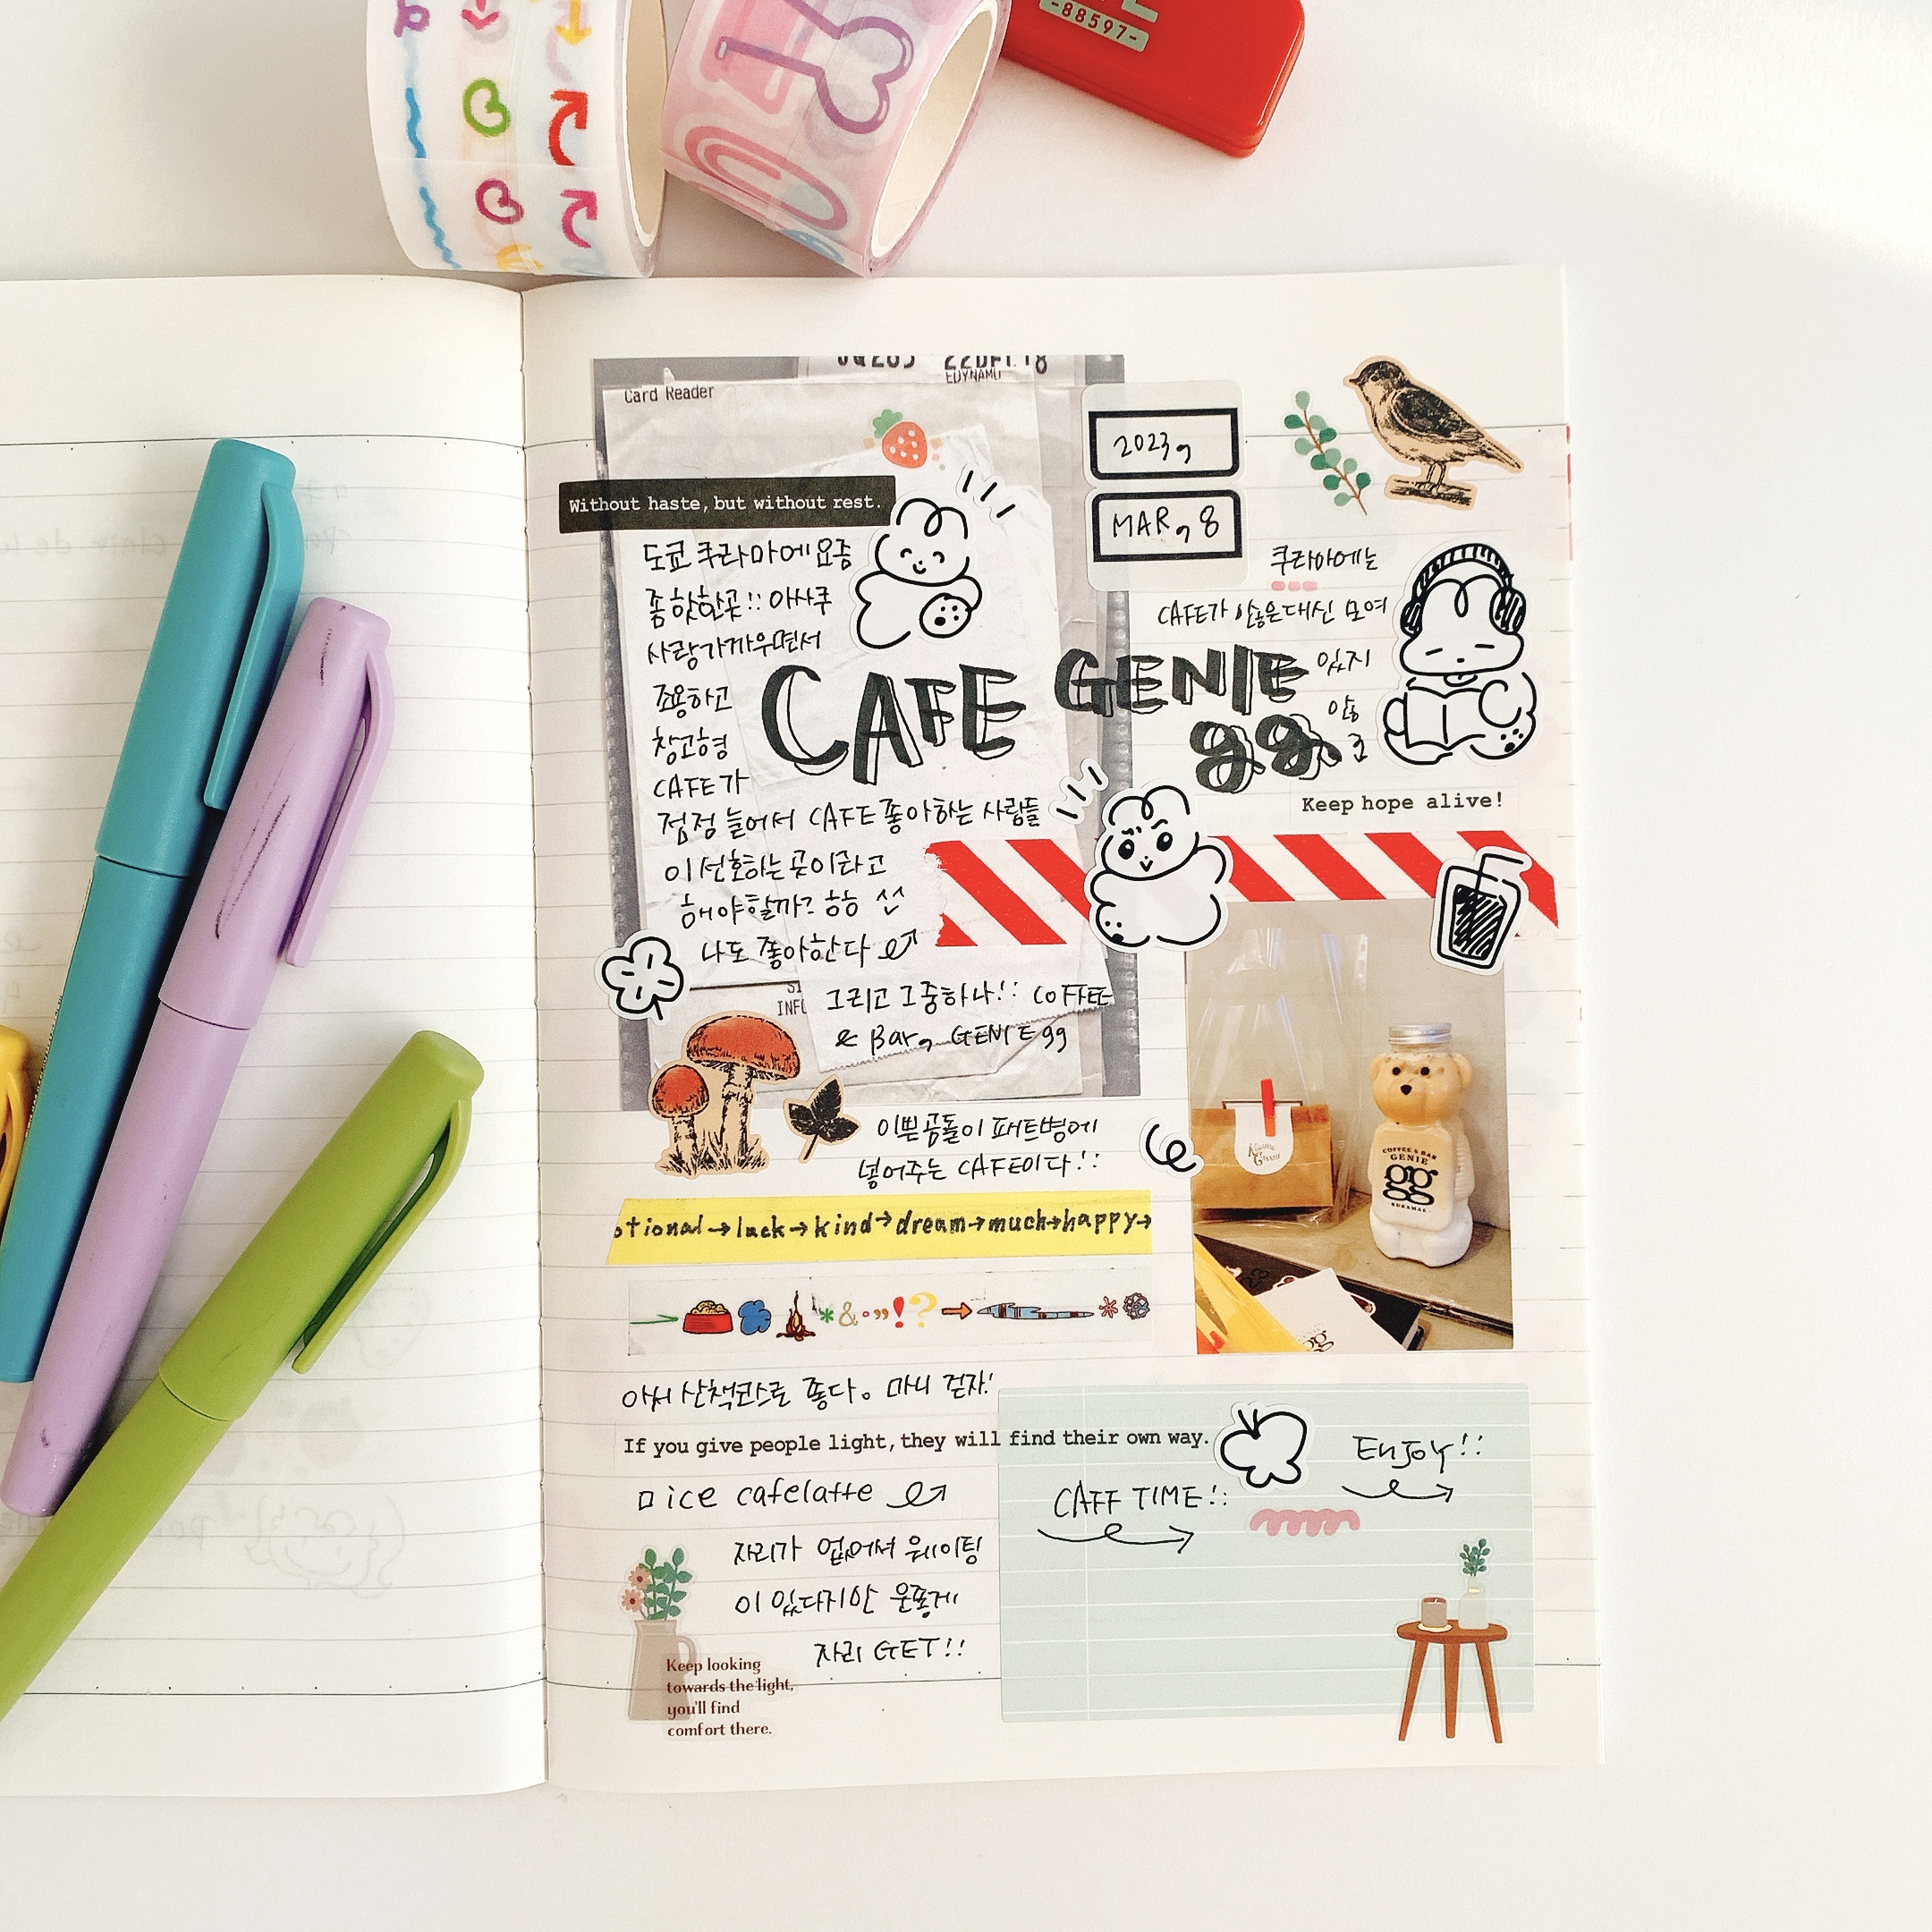 -88597-
Card Reader
EDYNAMO
Without haste, but without rest.
도쿄 쿠라마에 요즘
좀 핫한곳!! 아사쿠
사랑 가까우면서
조용하고
창고형
CAFE가
점점 늘어서 CAFE 좋아하는 사람들
이 선호하는 곳이라고
해야할까? ㅎㅎ
나도 좋아한다
그리고 그중하나!! COFFEE
& Bar, GENIE gg
CAFE GENIE
gg.
2023,
MAR, 8
쿠라마에는
CAFE가 많은대신 모여
있지
않
고
Keep hope alive!
이쁜곰돌이 패트병에
넣어주는 CAFE이다!!
otional→luck→kind→dream→much→happy→
COFFEE & BAR
GENIE
gg
KURAMAE
gg
아서 산책코스로 좋다。 마니 걷자!
If you give people light, they will find their own way.
ice cafelatte
자리가 없어서 웨이팅
이 있다지만 운좋게
자리 GET!!
Keep looking
towards the light,
you'll find
comfort there.
CAFF TIME!!
ENJOY!!